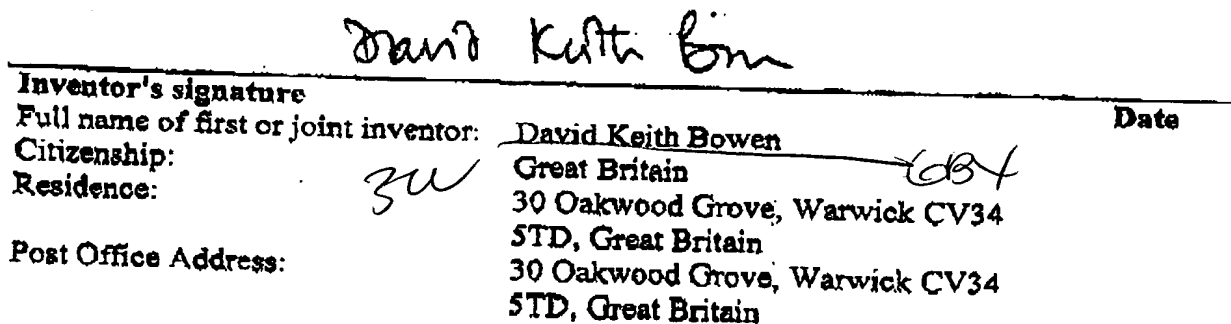 David Keith Bowen
Inventor's signature Date
Full name of first or joint inventor: David Keith Bowen
Citizenship: Great Britain GBX
Residence: 30 Oakwood Grove, Warwick CV34
5TD, Great Britain
Post Office Address: 30 Oakwood Grove, Warwick CV34
5TD, Great Britain